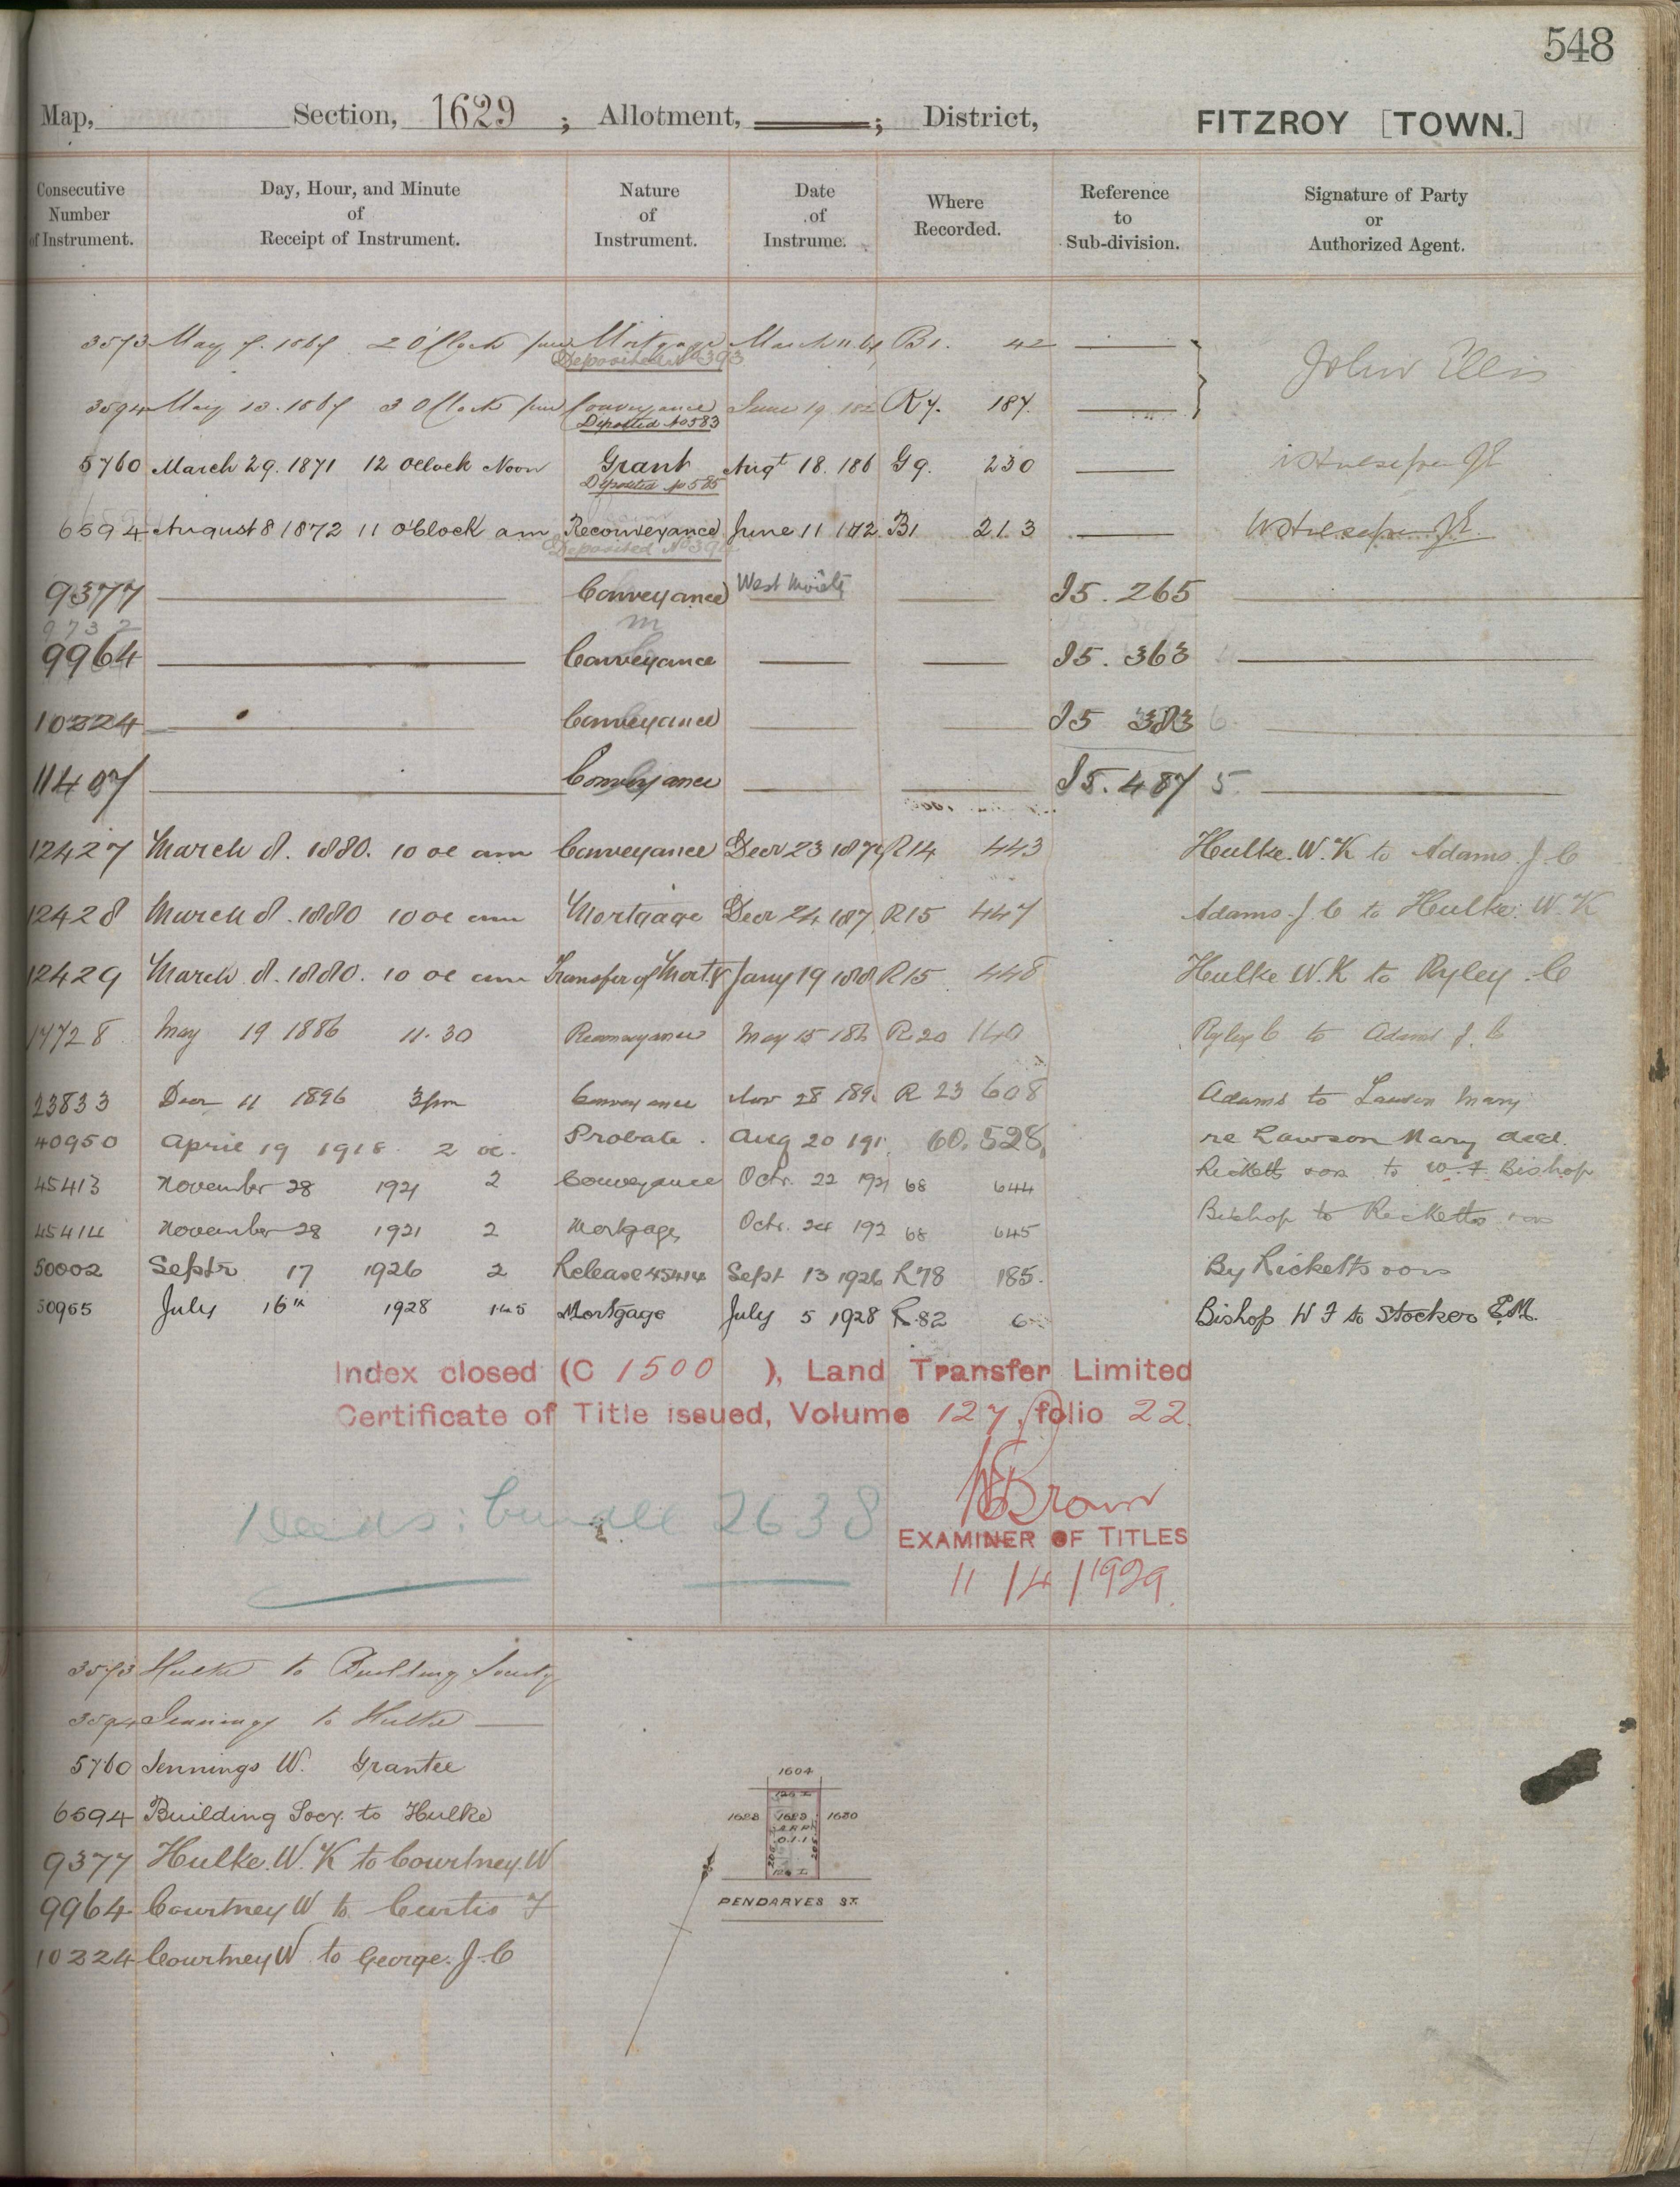 548
Map, Section, 1629 ; Allotment, ; District, FITZROY [TOWN.]
Consecutive Number of Instrument. Day, Hour, and Minute of Receipt of Instrument. Nature of Instrument. Date of Instrume. Where Recorded. Reference to Sub-division. Signature of Party or Authorized Agent.
3573 May 2 O'Clock Mortgage March 11 B1. 42 John Ellis
Deposited No 393
3594 May 13. 3 O'Clock Conveyance June 19 R7. 187.
Deposited No 583
5760 March 29. 1871 12 Oclock Noon Grant Augt 18. 186 G9. 230
Deposited No 585
6594 August 8 1872 11 O'Clock am Reconveyance June 11 1872 B1 213
Deposited No 394
9377 Conveyance West Moiety I5. 265
9732
9964 Conveyance I5. 363
10224 Conveyance I5 383 6.
11407 Conveyance I5. 487 5.
12427 March 8. 1880. 10 oc am Conveyance Decr 23 1879 R14 443 Hulke. W. K to Adams. J. C
12428 March 8. 1880 10 oc am Mortgage Decr 24 187 R15 447 Adams. J. C to Hulke. W. K
12429 March 8. 1880. 10 oc am Transfer of Mortg Jany 19 188 R15 448 Hulke W. K to Ryley. C
17728 May 19 1886 11.30 Reconveyance May 15 188 R20 140 Ryley C to Adams J. C
23833 Decr 11 1896 3pm Conveyance Nov 28 189 R 23 608 Adams to Lawson Mary
40950 April 19 1918. 2 oc. Probate. Aug 20 191 60. 528 re Lawson Mary decd.
45413 November 28 1921 2 Conveyance Octr. 22 192 68 644 Ricketts to W. F Bishop
45414 November 28 1921 2 Mortgage Octr. 24 192 68 645 Bishop to Ricketts
50002 Septr 17 1926 2 Release 45414 Sept 13 1926 R78 185. By Ricketts
50965 July 16th 1928 1.45 Mortgage July 5 1928 R.82 6 Bishop W F to Stocker E.M.
Index closed (C 1500 ), Land Transfer Limited
Certificate of Title issued, Volume 127, folio 22.
Deeds: bundle 2638
Brown
EXAMINER OF TITLES
11/4/1929.
3573 Hulke to Building Society
3594 Jennings to Hulke
5760 Jennings W. Grantee
6594 Building Socy. to Hulke
9377 Hulke. W. K to Courtney. W
9964 Courtney W to Curtis F
10224 Courtney W to George. J. C
1604
1628 1629 1630
0.1.1
PENDARVES ST.